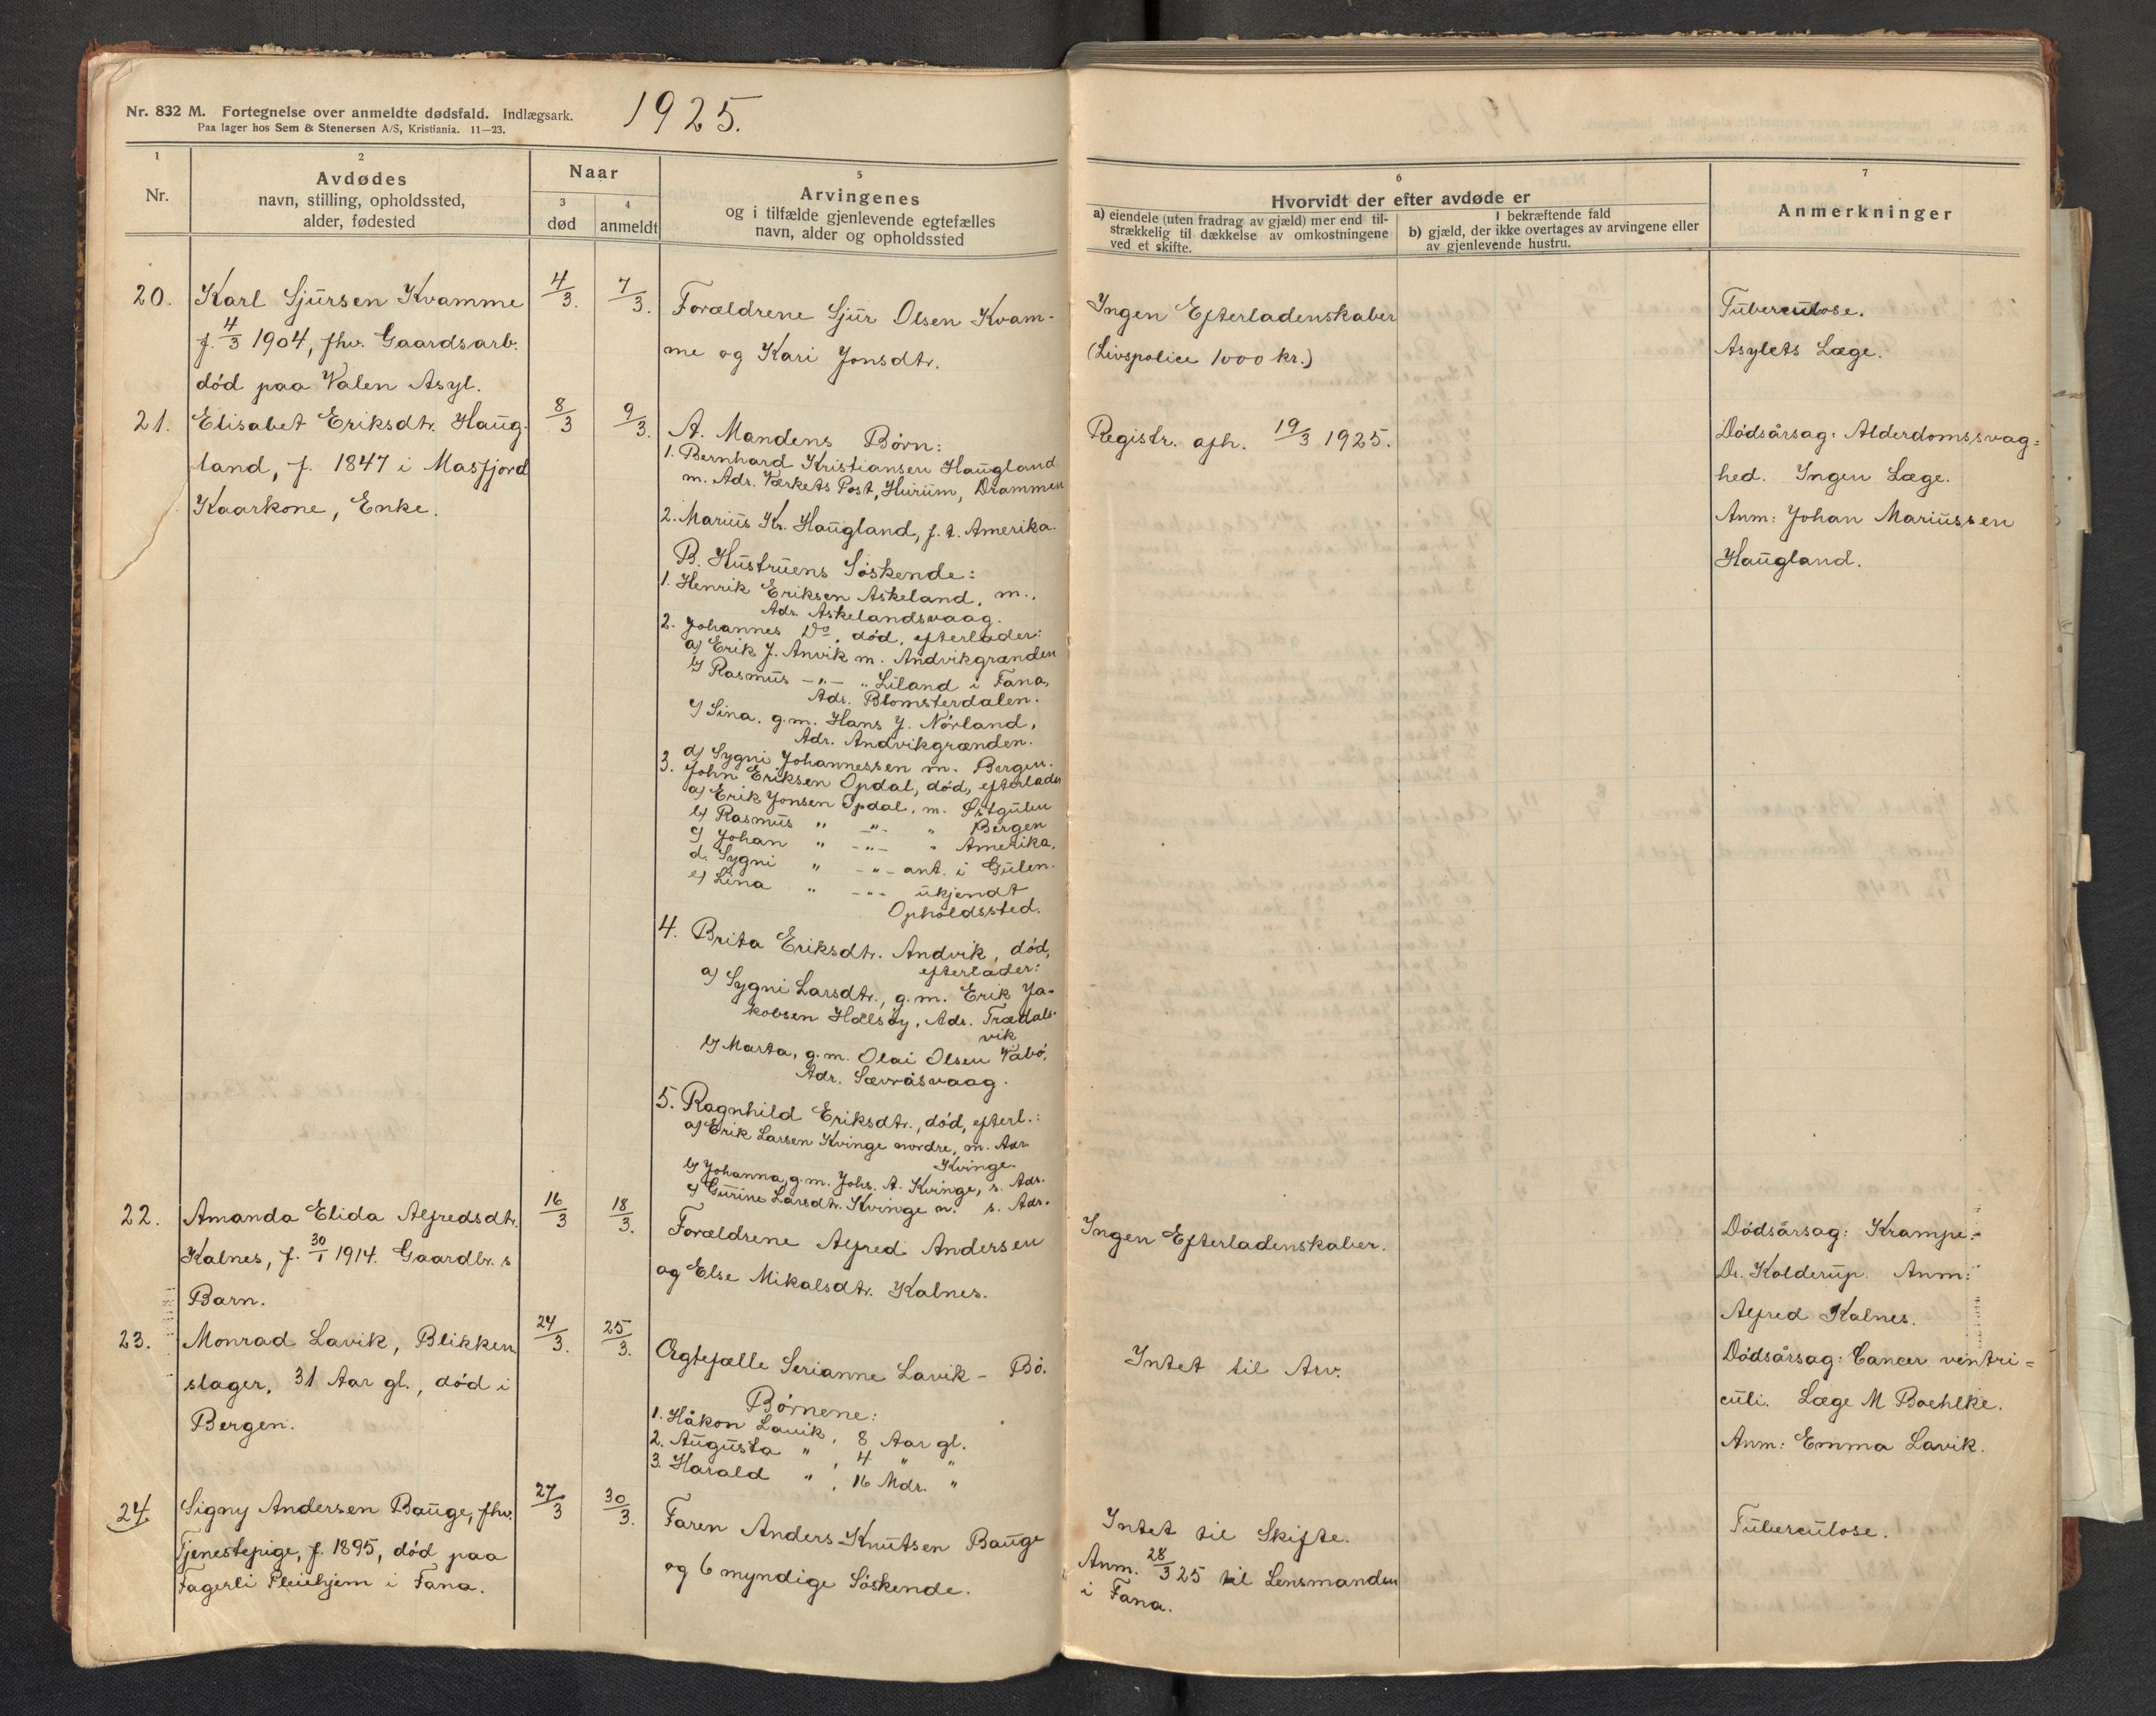 Nr. 832 M. Fortegnelse over anmeldte dødsfald. Indlægsark.
Paa lager hos Sem & Stenersen A/S, Kristiania. 11—23.
1925.
1
Nr.
2
Avdødes
navn, stilling, opholdssted,
alder, fødested
Naar
3
død
4
anmeldt
5
Arvingenes
og i tilfælde gjenlevende egtefælles
navn, alder og opholdssted
6
Hvorvidt der efter avdøde er
a) eiendele (uten fradrag av gjæld) mer end til-
strækkelig til dækkelse av omkostningene
ved et skifte.
I bekræftende fald
b) gjæld, der ikke overtages av arvingene eller
av gjenlevende hustru.
7
Anmerkninger
20.
Karl Sjursen Kvamme
f. 4/3 1904, fhv. Gaardsarb.
død paa Valen Asyl.
4/3.
7/3.
Forældrene Sjur Olsen Kvam-
me og Kari Jonsdtr.
Ingen Efterladenskaber
(Livspolice 1000 kr.)
Tuberculose.
Asylets Læge.
21.
Elisabet Eriksdtr. Haug-
land, f. 1847 i Masfjord
Kaarkone, Enke.
8/3
9/3.
A. Mandens Børn:
1. Bernhard Kristiansen Haugland
m. Adr. Værkets Post, Hurum, Drammen
2. Marius Kr. Haugland, f. t. Amerika.
B. Hustruens Søskende:
1. Henrik Eriksen Askeland, m.,
Adr. Askelandsvaag.
2. Johannes Do, død, efterlader:
a) Erik J. Anvik m. Andvikgrænden
b) Rasmus -"- " Liland i Fana,
Adr. Blomsterdalen.
c) Sina, g.m. Hans J. Nørland,
Adr. Andvikgrænden.
d) Sygni Johannessen m. Bergen.
3. John Eriksen Opdal, død, efterlader
a) Erik Jonsen Opdal, m. Østgulen
b) Rasmus " -"- " Bergen
c) Johan " -"- " Amerika.
d. Sygni " -"- ant. i Gulen.
e) Lina " -"- ukjendt
Opholdssted.
4. Brita Eriksdtr. Andvik, død,
efterlader:
a) Sygni Larsdtr., g.m. Erik Ja-
kobsen Halsøy, Adr. Trædals-
vik
b) Marta, g.m. Olai Olsen Vabø,
Adr. Sævråsvaag.
5. Ragnhild Eriksdtr., død, efterl.:
a) Erik Larsen Kvinge nordre, m. Adr.
Kvinge.
b) Johanna, g.m. Johs. A. Kvinge, s. Adr.
c) Gurine Larsdtr. Kvinge n. s. Adr.
Registr. afh. 19/3 1925.
Dødsårsag: Alderdomssvag=
hed. Ingen Læge.
Anm: Johan Mariussen
Haugland.
22.
Amanda Elida Alfredsdtr.
Kalnes, f. 30/1 1914. Gaardbr. s
Barn.
16/3
18/3.
Forældrene Alfred Andersen
og Else Mikalsdtr. Kalnes.
Ingen Efterladenskaber.
Dødsårsag: Krampe.
Dr. Kolderup. Anm:
Alfred Kalnes.
23.
Monrad Lavik, Blikken
slager, 31 Aar gl., død i
Bergen.
24/3.
25/3.
Ægtefælle Serianne Lavik - Bø.
Børnene:
1. Håkon Lavik, 8 Aar gl.
2. Augusta " , 4 " "
3. Harald " , 16 Mdr. "
Intet til Arv.
Dødsårsag: Cancer ventri=
culi. Læge M Boehlke.
Anm: Emma Lavik.
24.
Signy Andersen Bauge, fhv.
Tjenestepige, f. 1895, død paa
Fagerli Pleiehjem i Fana.
27/3
30/3.
Faren Anders Knutsen Bauge
og 6 myndige Søskende.
Intet til Skifte.
Anm. 28/3 25 til Lensmanden
i Fana.
Tuberculose.